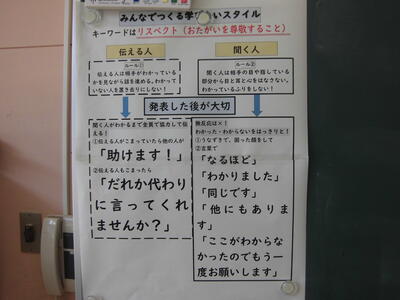 みんなでつくる学び合いスタイル
キーワードはリスペクト（おたがいを尊敬すること）
伝える人
聞く人
ルール①
伝える人は相手がわかっている
かを見ながら話を進める。わかって
いない人を置き去りにしない！
ルール②
聞く人は相手の目や指している
部分から目と耳と心をはなさない。
わかっているふりをしない！
発表した後が大切
聞く人がわかるまで全員で協力して伝
える！
①伝える人がこまっていたら他の人が
「助けます！」
②伝える人もこまったら
「だれか代わり
に言ってくれ
ませんか？」
無反応は×！
わかった・わからないをはっきりと！
①うなずきで、困った顔をして
②言葉で
「なるほど」
「わかりました」
「同じです」
「他にもありま
す」
「ここがわからな
かったのでもう一
度お願いします」